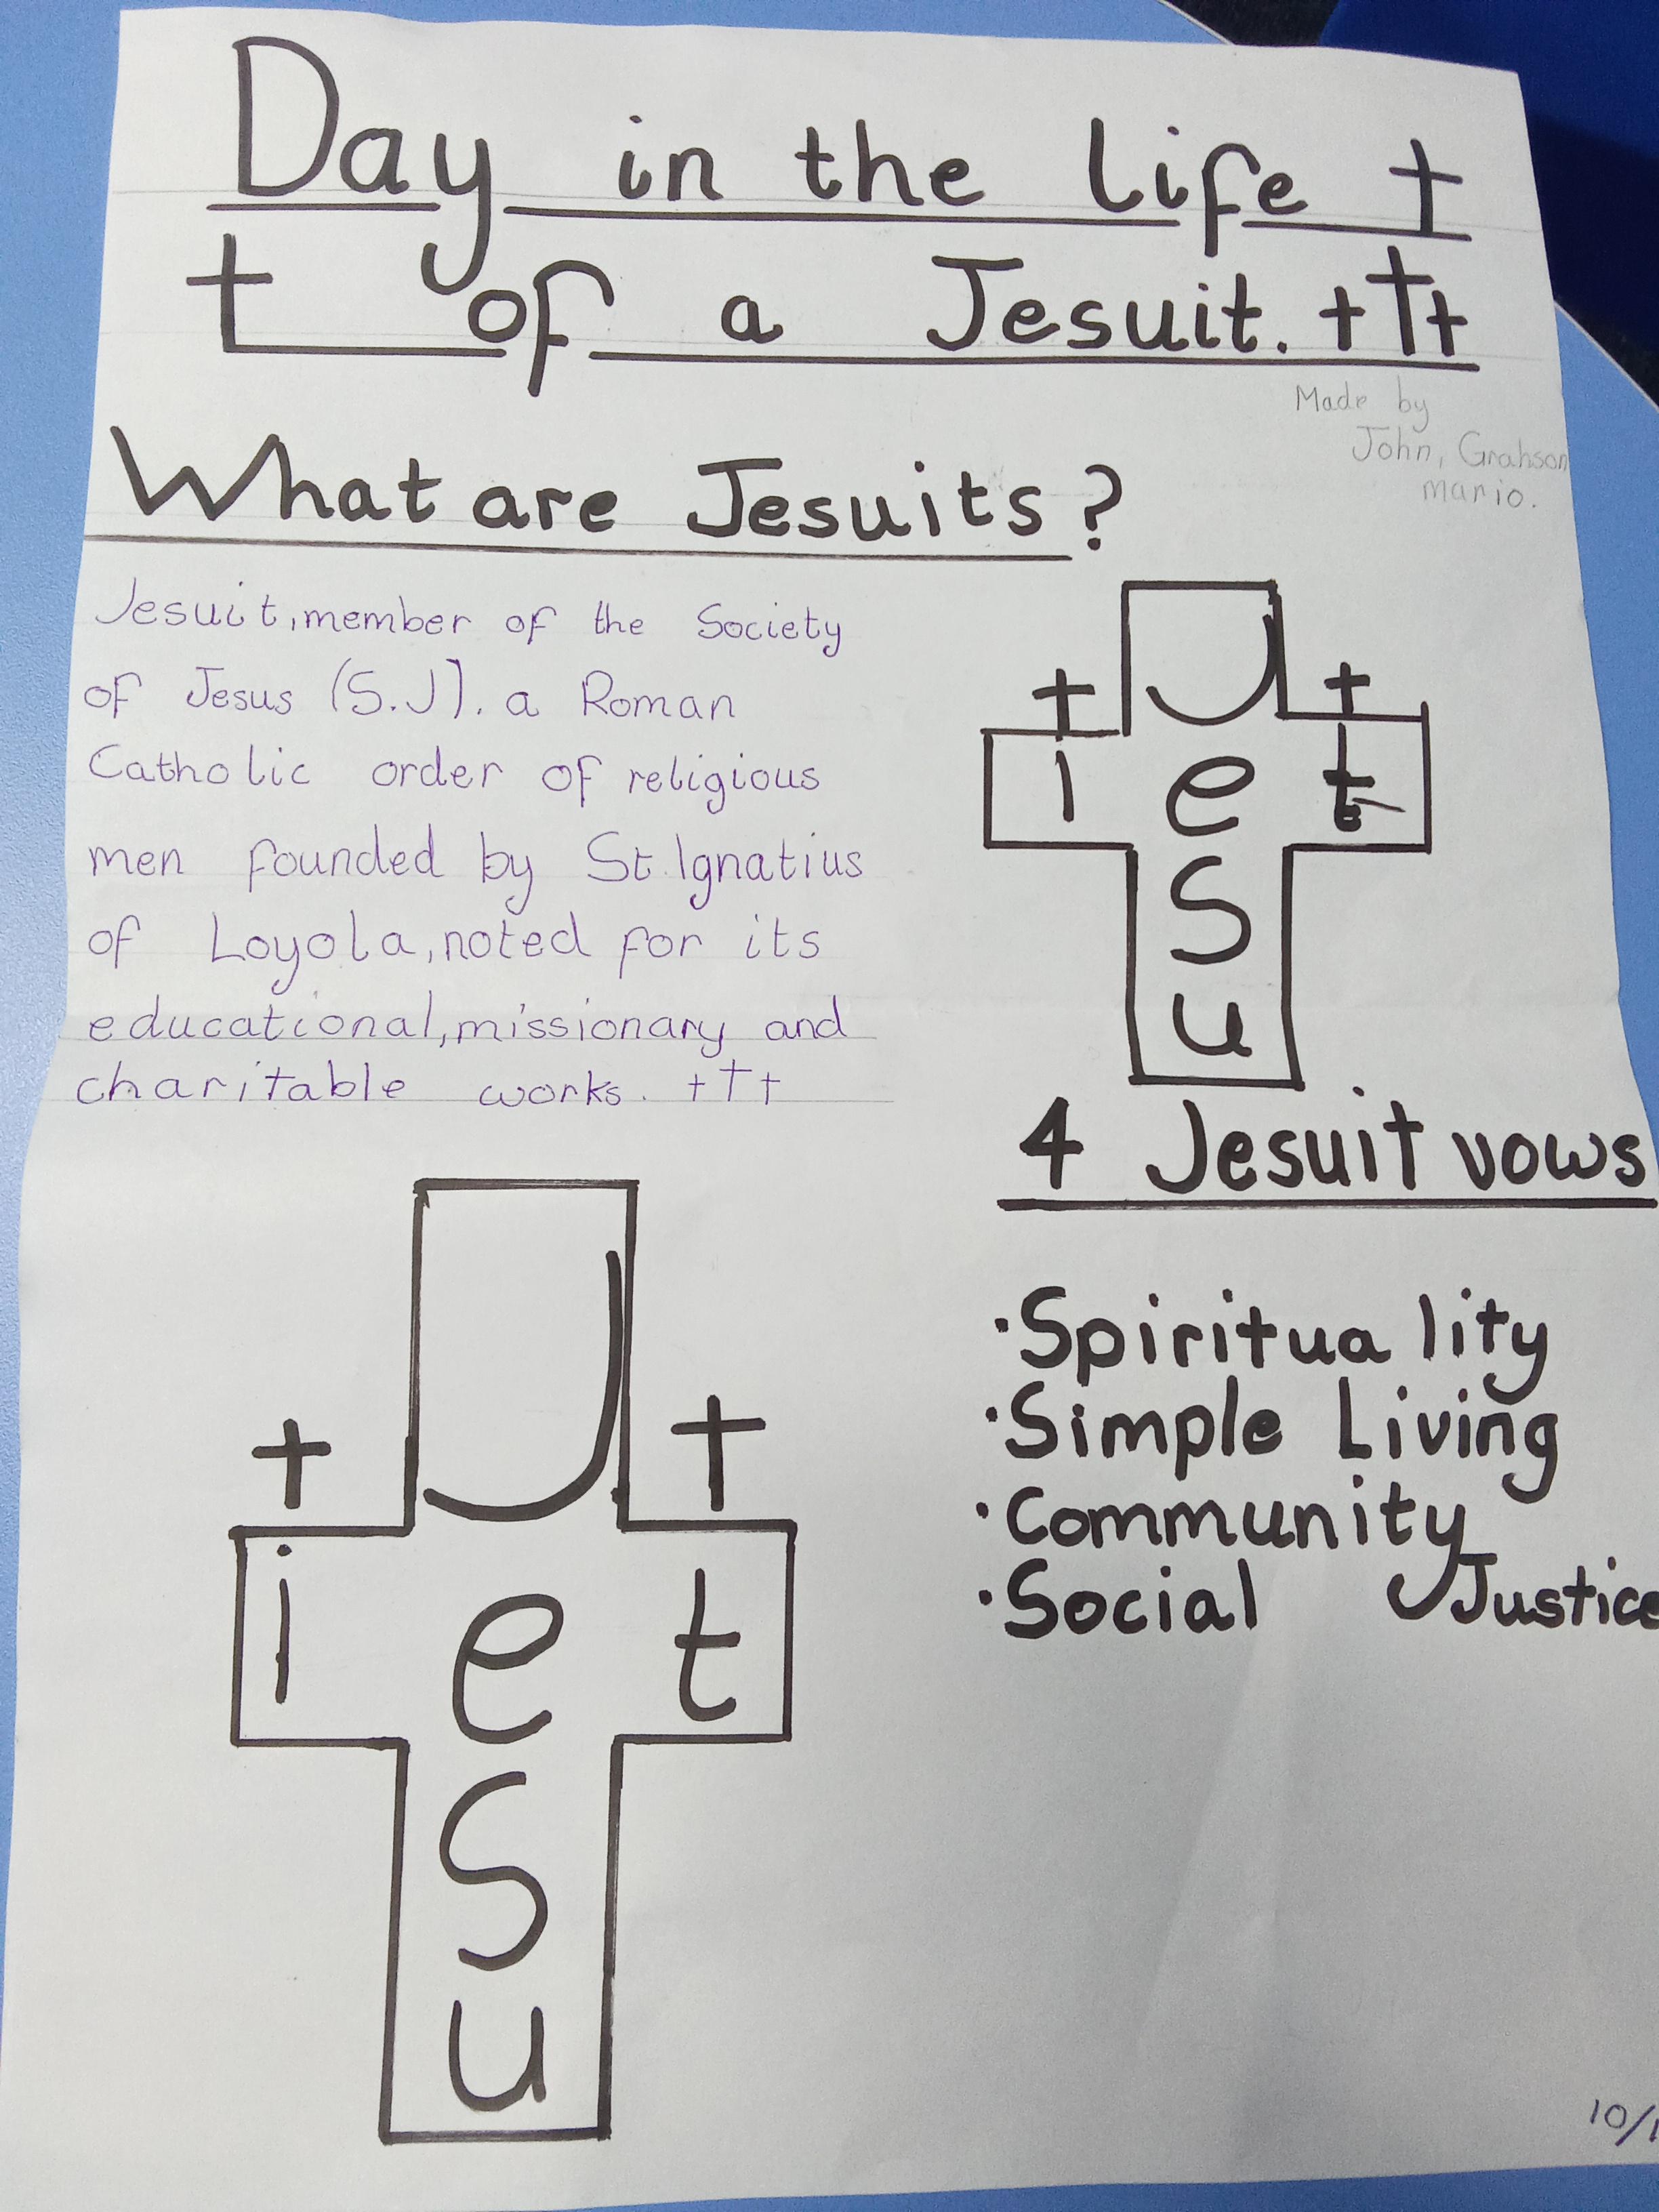 Day in the life
of a Jesuit.
Made by
John, Grahson
mario.
What are Jesuits?
Jesuit, member of the Society
of Jesus (S.J). a Roman
Catholic order of religious
men founded by St. Ignatius
of Loyola, noted for its
educational, missionary and
charitable works.
J
i e t
S
u
4 Jesuit vows
·Spirituality
·Simple Living
·Community
·Social Justice
J
i e t
S
u
10/1